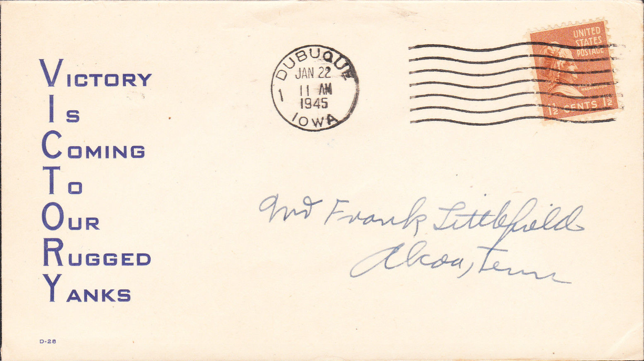 VICTORY
IS
COMING
TO
OUR
RUGGED
YANKS
D-26
DUBUQUE
JAN 22
11 AM
1945
1
IOWA
UNITED
STATES
POSTAGE
1½ CENTS 1½
Frank Littlefield
Alcoa, Tenn